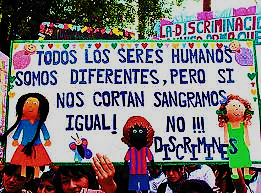 LA DISCRIMINACIÓ
TODOS LOS SERES HUMANOS
SOMOS DIFERENTES, PERO SI
NOS CORTAN SANGRAMOS
IGUAL! NO !!!
DISCRIMINES